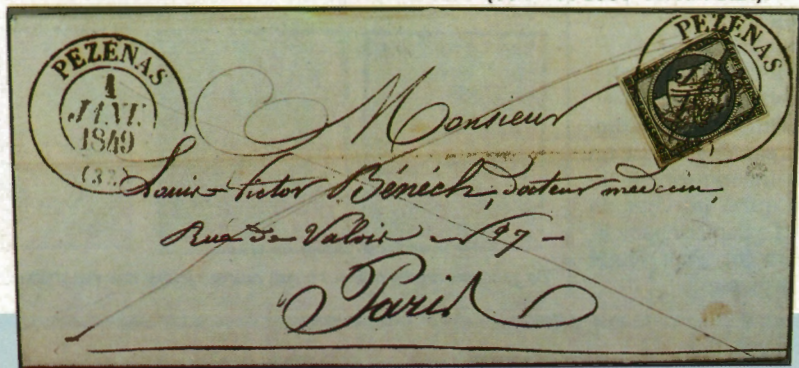 PEZENAS
1
JANV.
1849
PEZENAS
Monsieur
Louis-Victor Bénéch, docteur medecin,
Rue de Valois N°
Paris